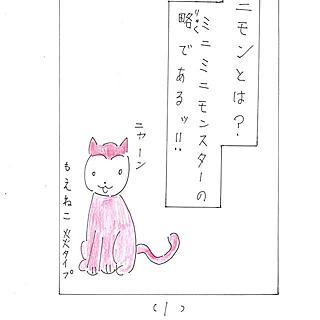 ニモンとは？
ミニミニモンスターの
略であるッ!!
りゃく
ニャーン
もえねこ 炎タイプ
(1)